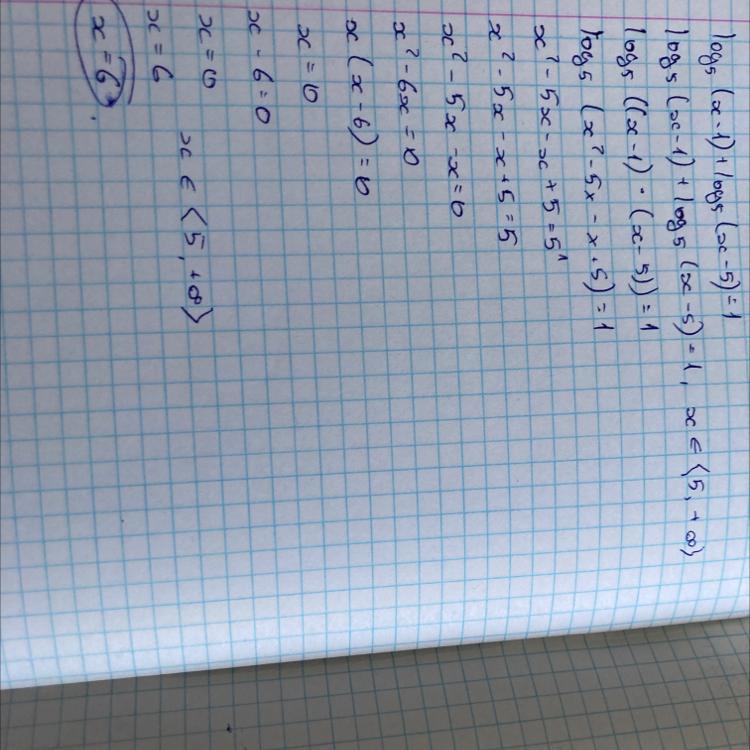 log₅ (x-1) + log₅ (x-5) = 1
log₅ (x-1) + log₅ (x-5) = 1, x ∈ ⟨5, +∞⟩
log₅ ((x-1) · (x-5)) = 1
log₅ (x² - 5x - x + 5) = 1
x² - 5x - x + 5 = 5¹
x² - 5x - x + 5 = 5
x² - 5x - x = 0
x² - 6x = 0
x (x - 6) = 0
x = 0
x - 6 = 0
x = 0
x = 6 x ∈ ⟨5, +∞⟩
x = 6